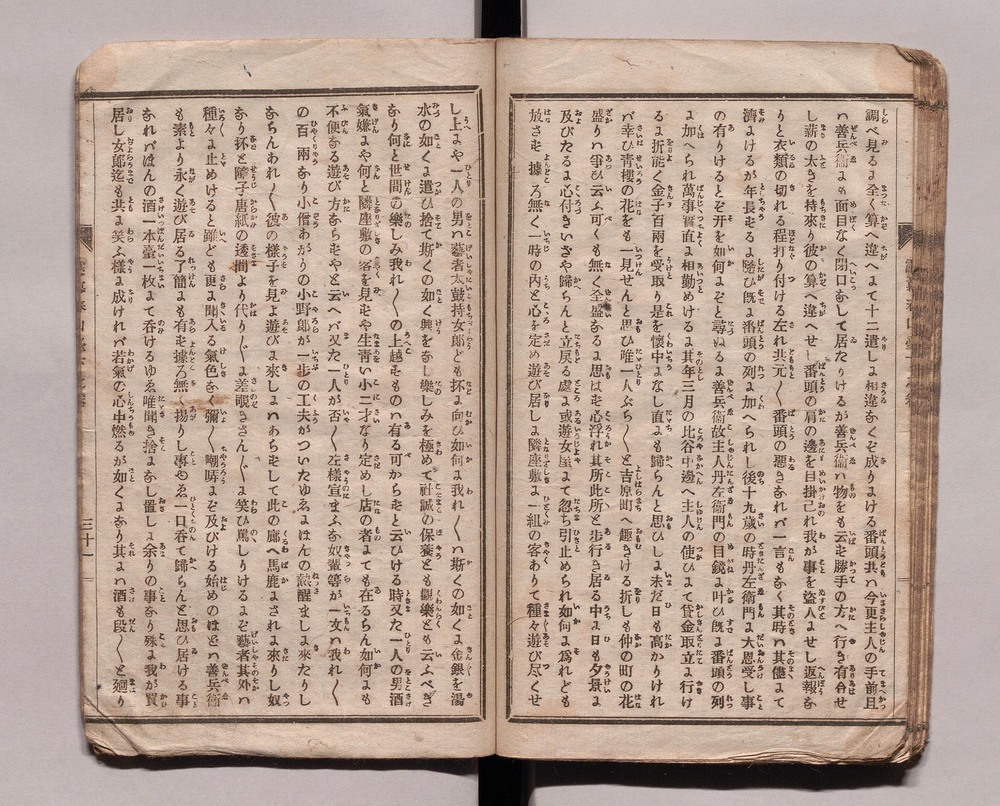 調べ見るよ全く算へ違へまて十二遣しよ相違なくぞ成りまける番頭共ハ今更主人の手前且
ハ善兵衞まも面目なく閉口なして居たりけるが善兵衞ハ物をも云ず勝手の方へ行き有合せ
し薪の太きを持來り彼の算へ違へせし番頭の肩の邊を目掛己れ我が事を盗人よせし返報な
りと衣類の切れる程打り付ける左れ共元〳〵番頭の惡きなれバ一言もなく其時ハ其儘まて
濟よけるが年長ずるよ隨ひ既よ番頭の列よ加へられし後十九歳の時丹左衞門よ大恩受し事
の有りけるとぞ开を如何よぞと尋ぬるよ善兵衞故主人丹左衞門の目鏡よ叶ひ既よ番頭の列
よ加へられ萬事實直よ相勤めけるよ其年三月の比谷中邊へ主人の使ひまて貸金取立よ行け
るよ折能く金子百兩を受取り是を懷中よなし直よも歸らんと思ひしよ未だ日も高かりけれ
バ幸ひ青樓の花をも一見せんと思ひ唯一人ぶら〳〵と吉原町へ趣きける折しも仲の町の花
盛りハ爭ひ云ふ可くも無く全盛なるよ思はず心浮れ其所此所と歩行き居る中よ日も夕景よ
及びたるよ心付きいざや歸らんと立戻る處よ或る遊女屋まて忽ち引止められ如何よ爲れども
放さず據ろ無く一時の内と心を定め遊び居しよ隣座敷よ一組の客ありて種々遊び尽くせ
し上よや一人の男ハ藝者太鼓持女郎どもよ向ひ如何よ我れ〳〵ハ斯くの如くよ金銀を湯
水の如くよ遣ひ捨て斯くの如く興をなし樂しみを極めて社誠の保養とも觀樂とも云ふべき
なり何と世間の樂しみ我れ〳〵の上越すものハ有る可からずと云ひける時又た一人の男酒
氣嫌よや何と隣座敷の客を見ずや生青い小二才なり定めし店の者よても在るらん如何よも
不便なる遊び方ならずやと云へバ又た一人が否〳〵左樣宣まふな奴輩等が一文ハ我れ〳〵
の百兩なり小僧あがりの小野郎が一歩の工夫がついたゆゑよほんの熱醒ましよ來たりし
ならんあれ〳〵彼の樣子を見よ遊びよ來しよハあらずして此の廓へ馬鹿よされよ來りし奴
なり抔と障子唐紙の透間より代り〳〵よ差覗きさん〴〵よ笑ひ罵しりけるよぞ藝者其外ハ
種々よ止めけると雖ども更よ聞入る氣色なく彌〳〵嘲哢よぞ及びける始めのほどハ善兵衞
も素より永く遊び居る了簡よも有ず據ろ無く揚りし事ゆゑ一口呑て歸らんと思ひ居ける事
なれバほんの酒一本臺一枚まて呑けるゆゑ唯聞き捨よなし置しよ余りの事なり殊よ我が買
居し女郎迄も共よ笑ふ樣よ成けれバ若氣の心中燃るが如くよなり其よハ酒も段〳〵と廻り
三十一